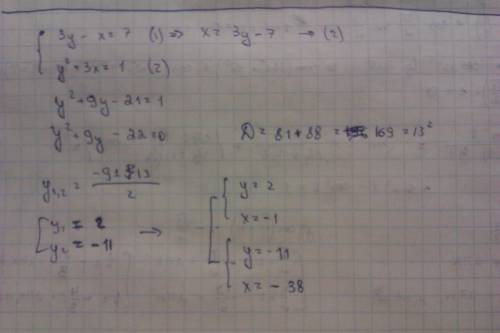 3y - x = 7 (1) => x = 3y - 7 → (2)
y² + 3x = 1 (2)
y² + 9y - 21 = 1
y² + 9y - 22 = 0 D = 81 + 88 = 169 = 13²
y₁,₂ = (-9 ± 13) / 2
y₁ = 2
y₂ = -11
→
y = 2
x = -1
y = -11
x = -38